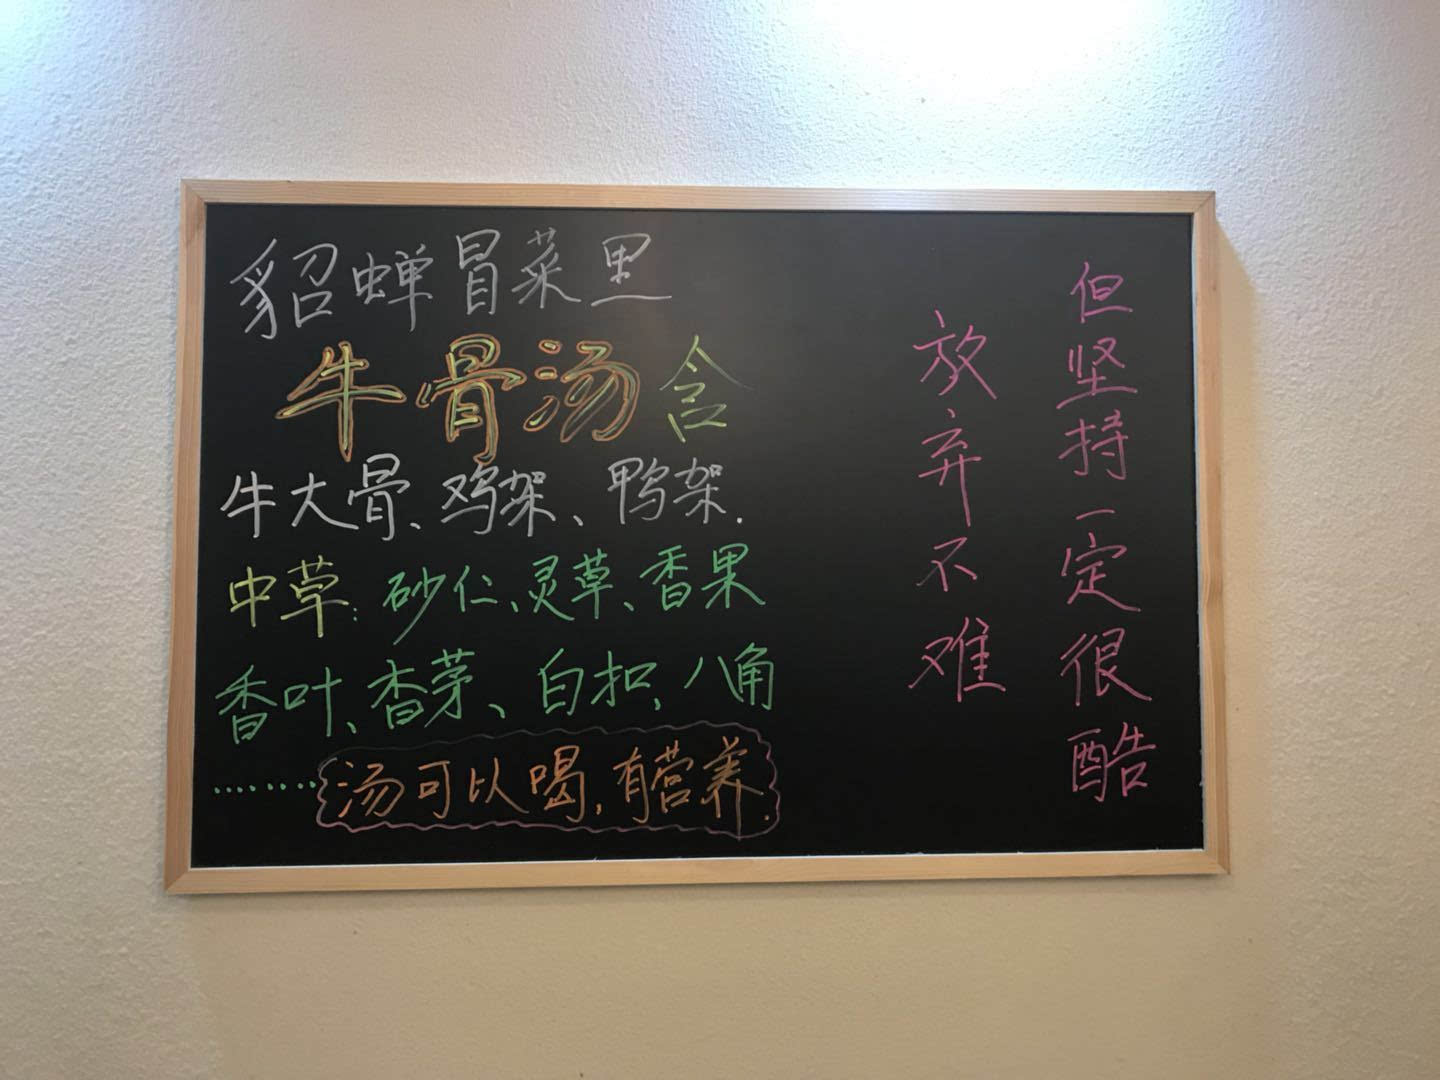 貂蝉冒菜里
牛骨汤含
牛大骨、鸡架、鸭架.
中草:砂仁、灵草、香果
香叶、香茅、白扣,八角
………汤可以喝,有营养.
放弃不难
但坚持一定很酷